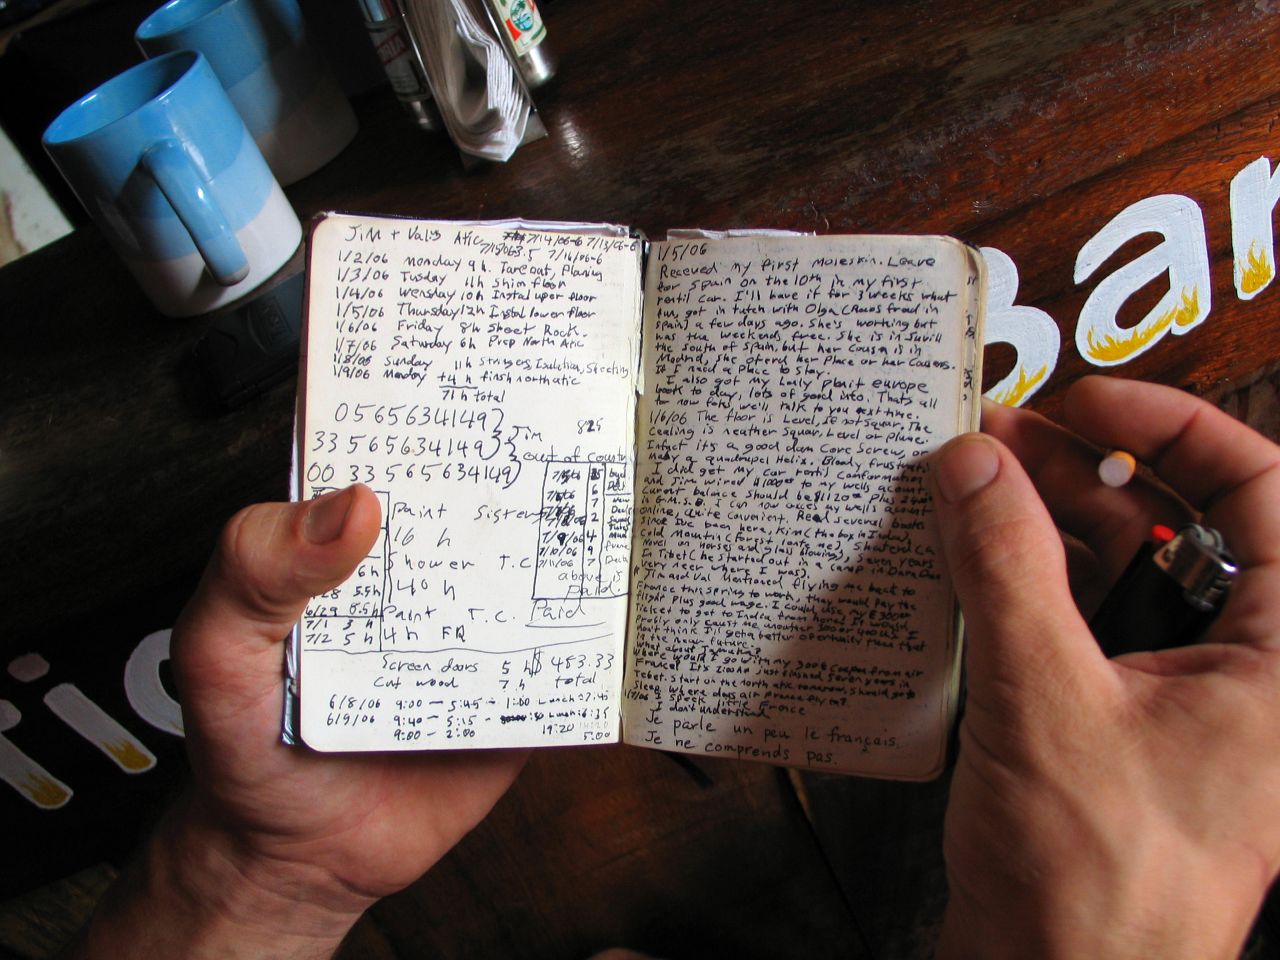 Jim + Val's Atic 7/14/06-6 7/13/06-6
7/15/06 3.5 7/16/06-6
1/2/06 monday 9h. Tareout, Planing
1/3/06 Tusday 11h Shim floor
1/4/06 Wensday 10h Instal uper floor
1/5/06 Thursday 12h Instal lower floor
1/6/06 Friday 8h Sheet Rock.
1/7/06 Saturday 6h Prep North Atic
1/8/06 Sunday 11h Stringers, Insulation, Sheeting
1/9/06 Monday +4h finsh north atic
71h total
0565634149)
33 565634149) } Jim 825
00 33 565634149) out of country
Paint Sister
16 h
Shower T.C
40 h
5.5h
6/29 8.5h Paint T.C. Paid
7/1 3h
7/2 5h 4h FR
above is
paid.
Screen doors 5 h $ 453.33
Cut wood 7 h total
6/8/06 9:00 - 5:45 - 1:00 Lunch = 7:45
6/9/06 9:40 - 5:15 - :50 Lunch = 6:35
9:00 - 2:00 19:20 5:00
1/5/06
Receved my first Moleskin. Leave
for Spain on the 10th in my first
rentil car. I'll have it for 3 weeks what
fun, got in tutch with Olga (Raos frend in
Spain) a few days ago. She's working but
has the weekends free. She is in Sivill
the south of Spain, but her Cousn is in
Madrid, she oferd her Place or her Cousens.
If I need a Place to Stay.
I also got my Lonly planit europe
book to day, lots of good info. Thats all
for now fate we'll talk to you next time.
1/6/06 The floor is Level, if not Squar. The
Cealing is neather Squar, Level or Plune.
Infact its a good dam Core Screw, or
Maby a quadrupel Helix. Bloody frustrati
I did get my Car rentil Conformation
and Jim wired $1000.00 to my wells acount.
Curent balance Should be $1120.00 Plus
in G.M.S.B. I can now acces my wells acount
online, quite convenient. Read several books
since I've been here, Kim (the box in India),
Cold Mountin (forest lante me),
Novel on horses and glass blowing), Seven years
In Tibet (he started out in a camp in Dara Doon
very neer where I was).
Jim and Val mentioned flying me back to
France this spring to work, they would Pay the
flight Plus good wage. I could use my €300
Ticket to get to India from home! It would
Probly only caust me another 300 or 400 U.S. I
don't think I'll get a better oportunity than that
in the near future.
What about Jamaka?
Where would I go with my 300€ Coupon from air
France? It's 2:00 AM just finshed Seven years in
Tebet. Start on the north atic tomorrow. Should go to
Sleep. Where does air france fly to?
1/7/06 I Speek little France
I don't understand
Je parle un peu le français.
Je ne comprends pas.
Bar